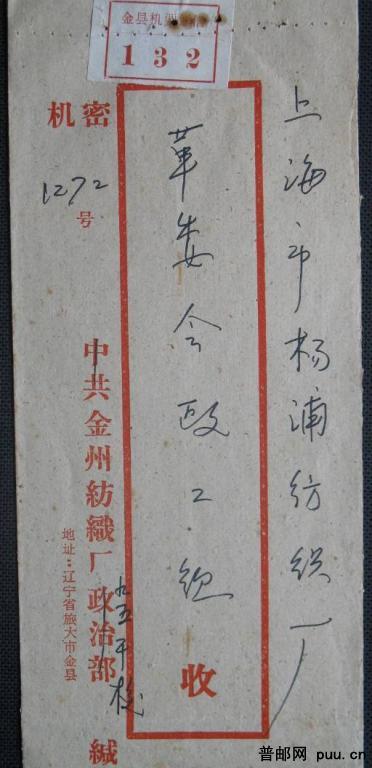 上海市杨浦纺织厂
革委会政工组
收
金县机
132
机密
1272号
中共金州纺織厂政治部 缄
五干校
地址:辽宁省旅大市金县
普邮网 puu.cn